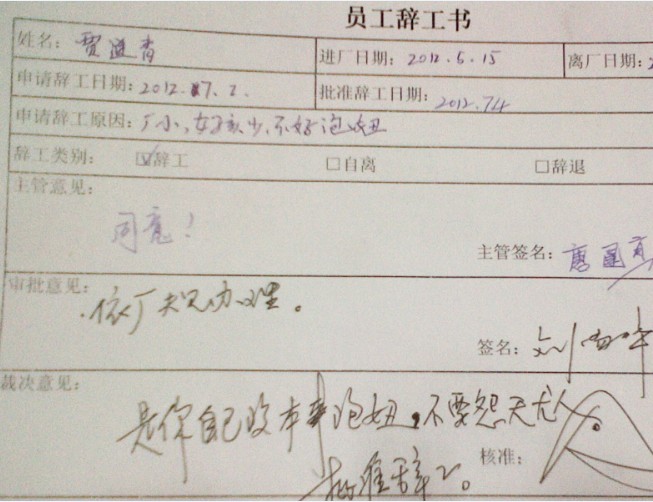 员工辞工书
姓名：贾进青 进厂日期：2012.5.15 离厂日期：
申请辞工日期：2012.7.2. 批准辞工日期：2012.7.4
申请辞工原因：厂小，女孩少，不好泡妞
辞工类别： ☑辞工 □自离 □辞退
主管意见：
同意！
主管签名：唐国
审批意见：
依厂规办理。
签名：刘
裁决意见：
是你自己没本事泡妞，不要怨天尤人。
核准：
批准辞工。